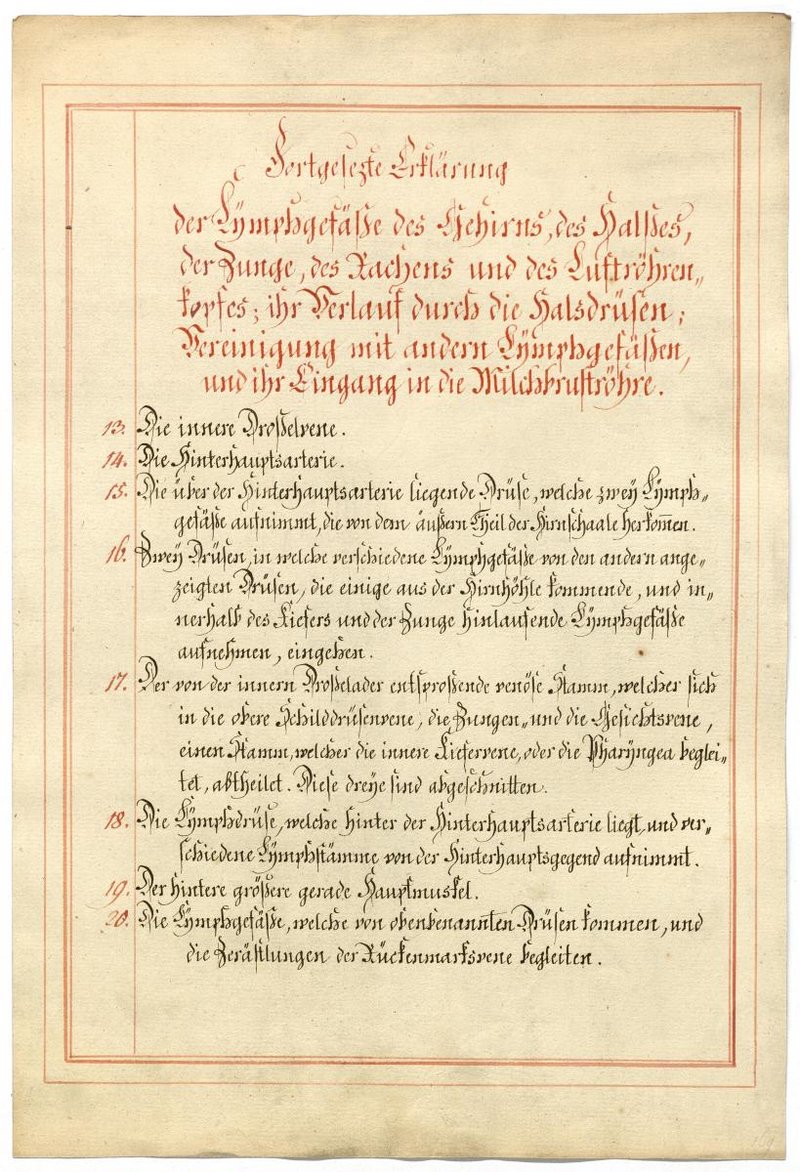 Fortgesezte Erklärung
der Lÿmphgefäße des Gehirns, des Halßes,
der Zunge, des Rachens und des Luftröhren„
kopfes; ihr Verlauf durch die Halsdrüsen;
Vereinigung mit andern Lÿmphgefäßen,
und ihr Eingang in die Milchbruströhre.
13. Die innere Droßelvene.
14. Die Hinterhauptsarterie.
15. Die über der Hinterhauptsarterie liegende Drüse, welche zweÿ Lÿmph„
gefäße aufnimmt, die von dem äußern Theil der Hirnschaale herkom̅en.
16. Zweÿ Drüsen, in welche verschiedene Lÿmphgefäße von den andern ange„
zeigten Drüsen, die einige aus der Hirnhöhle kommende, und in„
nerhalb des Kiefers und der Zunge hinlaufende Lÿmphgefäße
aufnehmen, eingehen.
17. Der von der innern Droßelader entsproßende venöse Stamm, welcher sich
in die obere Schilddrüsenvene, die Zungen„ und die Gesichtsvene,
einen Stamm, welcher die innere Kiefervene, oder die Pharÿngea beglei„
tet, abtheilet. Diese dreÿe sind abgeschnitten.
18. Die Lÿmphdrüse, welche hinter der Hinterhauptsarterie liegt, und ver„
schiedene Lÿmphstämme von der Hinterhauptsgegend aufnimmt.
19. Der hintere größere gerade Hauptmuskel.
20. Die Lÿmphgefäße, welche von obenbenannten Drüsen kommen, und
die Zerästlungen der Rückenmarksvene begleiten.